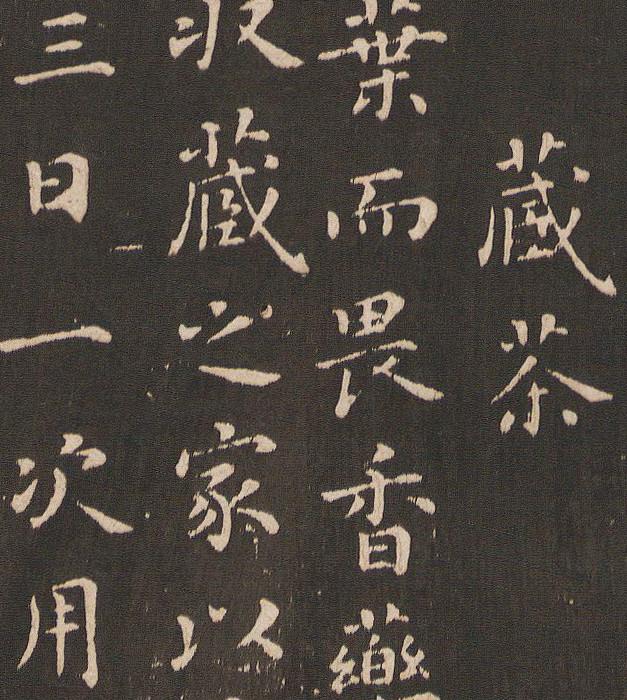 藏茶
葉而畏香藥
収藏之家以
三日一次用